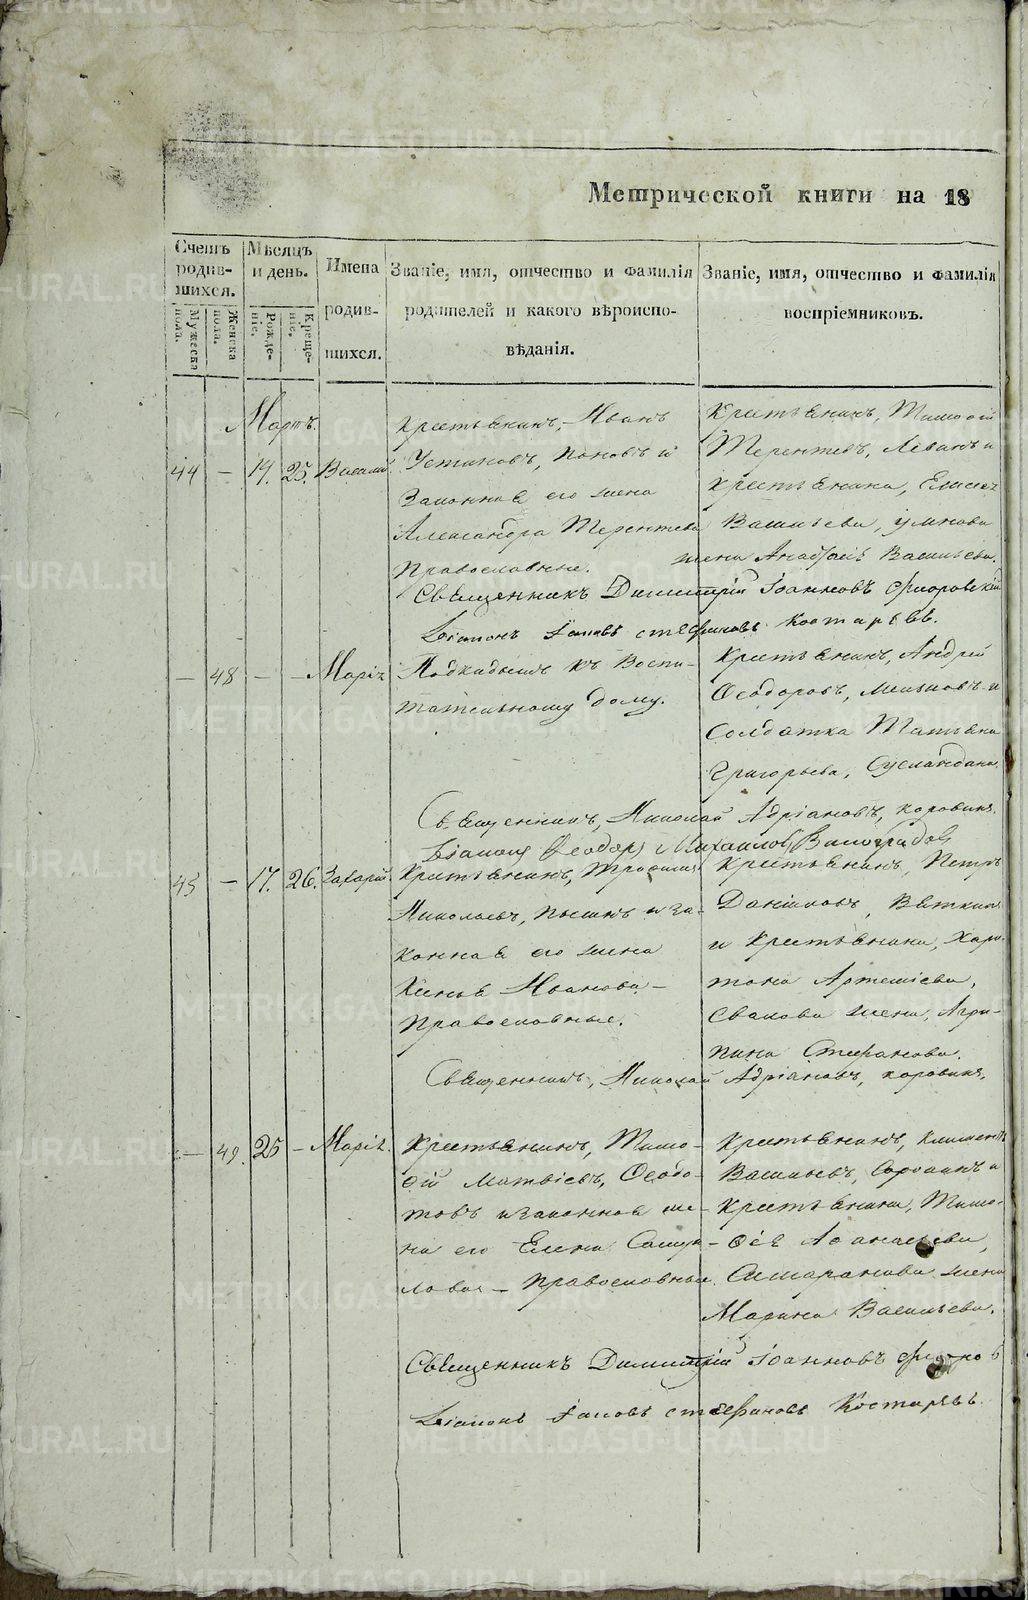 Метрической книги на 18
Счетъ родив-шихся.
Мужеска пола.
Женска пола.
Мѣсяцъ и день.
Рожде-ніе.
Креще-ніе.
Имена родив-шихся.
Званіе, имя, отчество и фамилія родителей и какого вѣроиспо-вѣданія.
Званіе, имя, отчество и фамилія воспріемниковъ.
Мартъ.
44 — 19. 25. Василій
Крестьянинъ, Иванъ
Устиновъ, Поповъ и
Законная его жена
Александра Терентьева
Православные.
Крестьянинъ, Тимофѣй
Терентьевъ, и
Крестьянина,
Васильева,
жена Васильева.
Священникъ Димитрій Іоанновъ Флоровскій
Діаконъ Іаковъ Стефановъ Костаревъ.
— 48 — — Марія
Подкидышъ къ Воспи-
тательному дому.
Крестьянинъ, Андрей
Ѳеодоровъ, и
Солдатка Татьяна
Григорьева,
Священникъ, Николай Адріановъ, Коровинъ.
Діаконъ Ѳеодоръ Михаиловъ Виноградовъ
45 — 17. 26. Захарій.
Крестьянинъ, Трофимъ
Николаевъ, и за-
конная его жена
Ксенья Иванова —
Православные.
Крестьянинъ, Петръ
Даниловъ, Вяткинъ
и Крестьянина, Хари-
тона Артеміева,
жена, Агри-
пина Стефанова.
Священникъ, Николай Адріановъ, Коровинъ.
— 49. 25 — Марія.
Крестьянинъ, Тимо-
фѣй Матвѣевъ, Ѳедо-
товъ и законная же-
на его Елена Самуи-
лова — Православные.
Крестьянинъ, Климентъ
Васильевъ, и
Крестьянина, Тимо-
фея Афанасьева,
жена
Марина Васильева.
Священникъ Димитрій Іоанновъ
Діаконъ Іаковъ Стефановъ Костаревъ.
METRIKI.GASO-URAL.RU